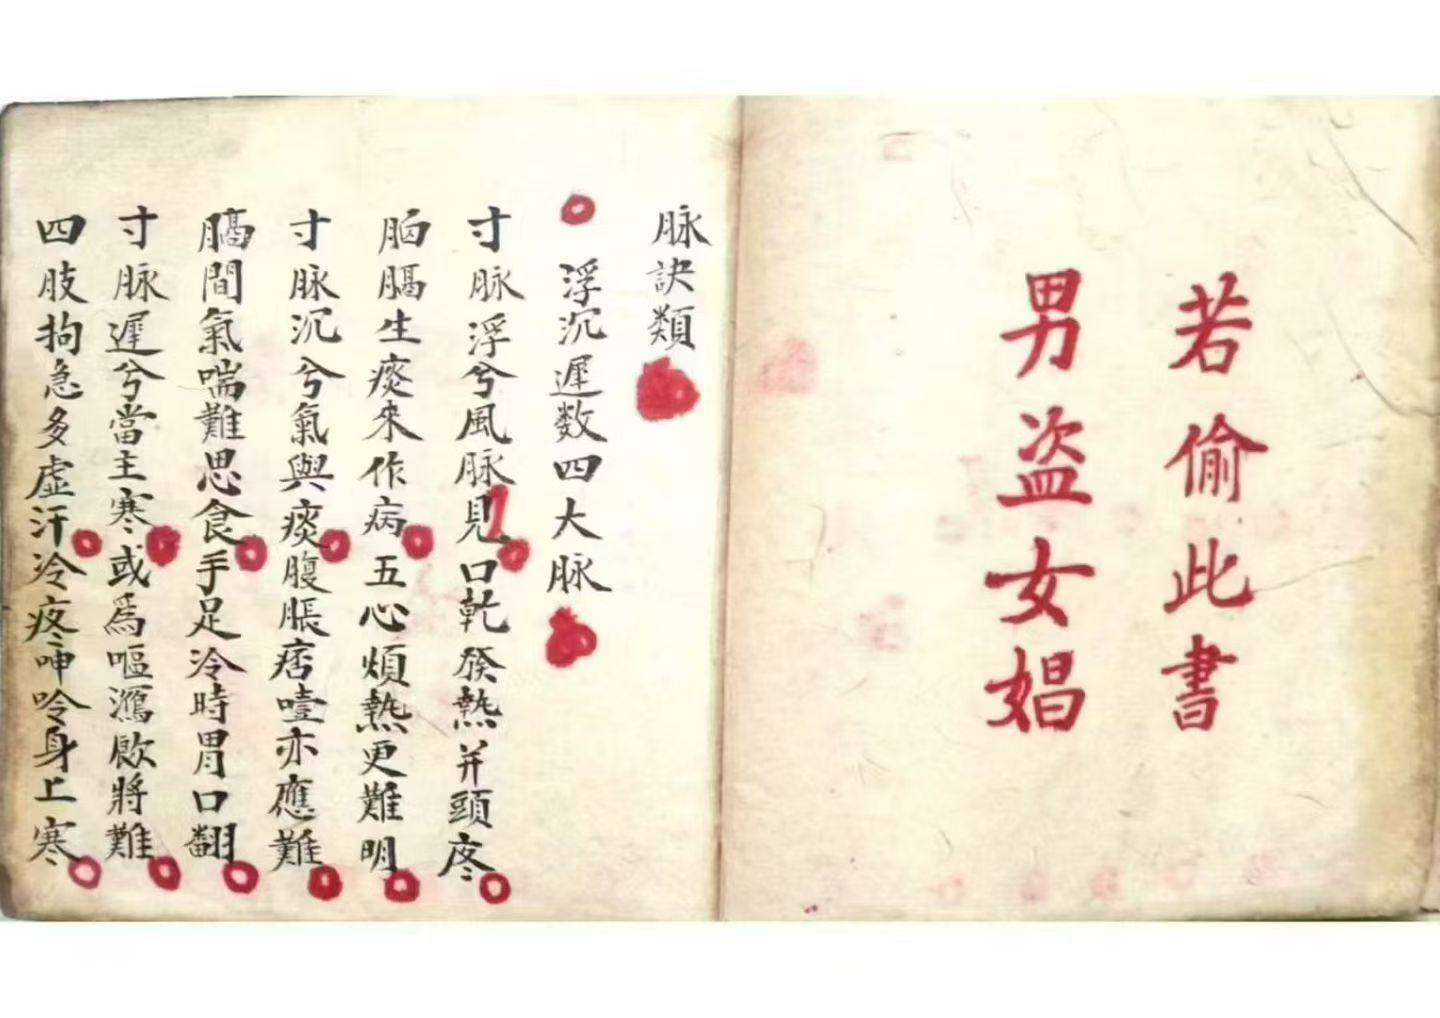 若偷此書
男盗女娼
脉訣類
浮沉遲数四大脉
寸脉浮兮風脉見口乾發熱并頭疼
胸膈生痰來作病五心煩熱更難明
寸脉沉兮氣與痰腹脹痞噎亦應難
膈間氣喘難思食手足冷時胃口翻
寸脉遲兮當主寒或爲嘔瀉飮將難
四肢拘急多虚汗冷疼呻吟身上寒